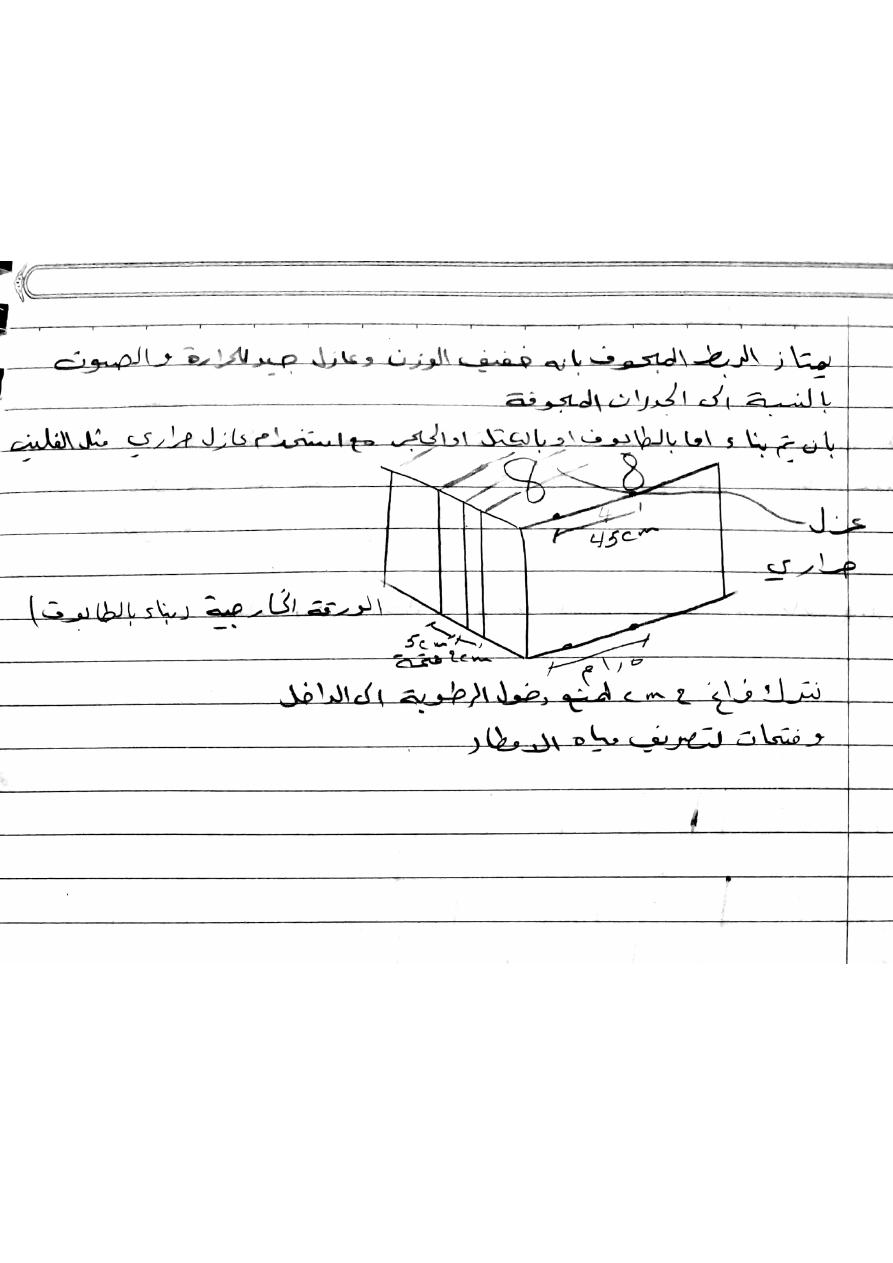 يمتاز الربط المجوف بانه خفيف الوزن وعازل جيد للحرارة والصوت
بالنسبة الى الجدران المجوفة
بأن يتم بناء اما بالطابوق او بالبتل او الحجر مع استخدام عازل حراري مثل الفلين
8 8
عزل
45cm
حراري
الورقة الخارجية (بناء بالطابوق)
5cm
2cm فتحة
1,5 م
نترك فراغ 2cm لمنع دخول الرطوبة الى الداخل
وفتحات لتصريف مياه الامطار